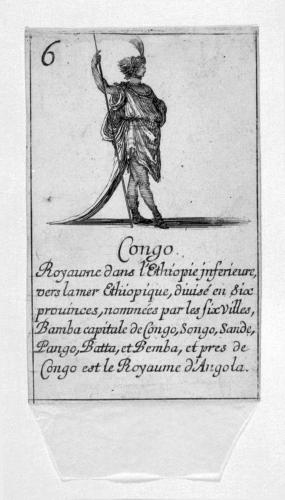 6
Congo.
Royaume dans l'Ethiopie jnferieure,
vers la mer Ethiopique, diuisé en six
prouinces, nommées par les six villes,
Bamba capitale de Congo, Songo, Sande,
Pango, Batta, et Bemba, et pres de
Congo est le Royaume d'Angola.